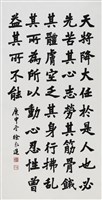 天將降大任於是人也必
先苦其心志勞其筋骨餓
其體膚空乏其身行拂亂
其所為所以動心忍性曾
益其所不能
庚申冬徐